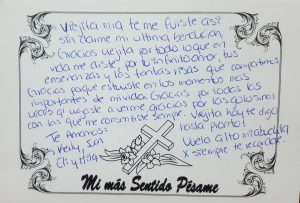 Viejita mia te me fuiste asi
sin darme mi ultima bendición,
Gracias viejita por todo lo que en
vida me diste por tu infinito amor, tus
enseñanzas y las tantas risas que compartimos
Gracias porque estuviste en los momentos más
importantes de mi vida. Gracias por todas las
veces q' llegaste a verme gracias por las golosinas
con las que me consentiste siempre. Viejita hoy te digo
Hasta pronto!
Te Amamos:
Vuela alto mi abuelita
x siempre te recordaré.
Mi más Sentido Pésame